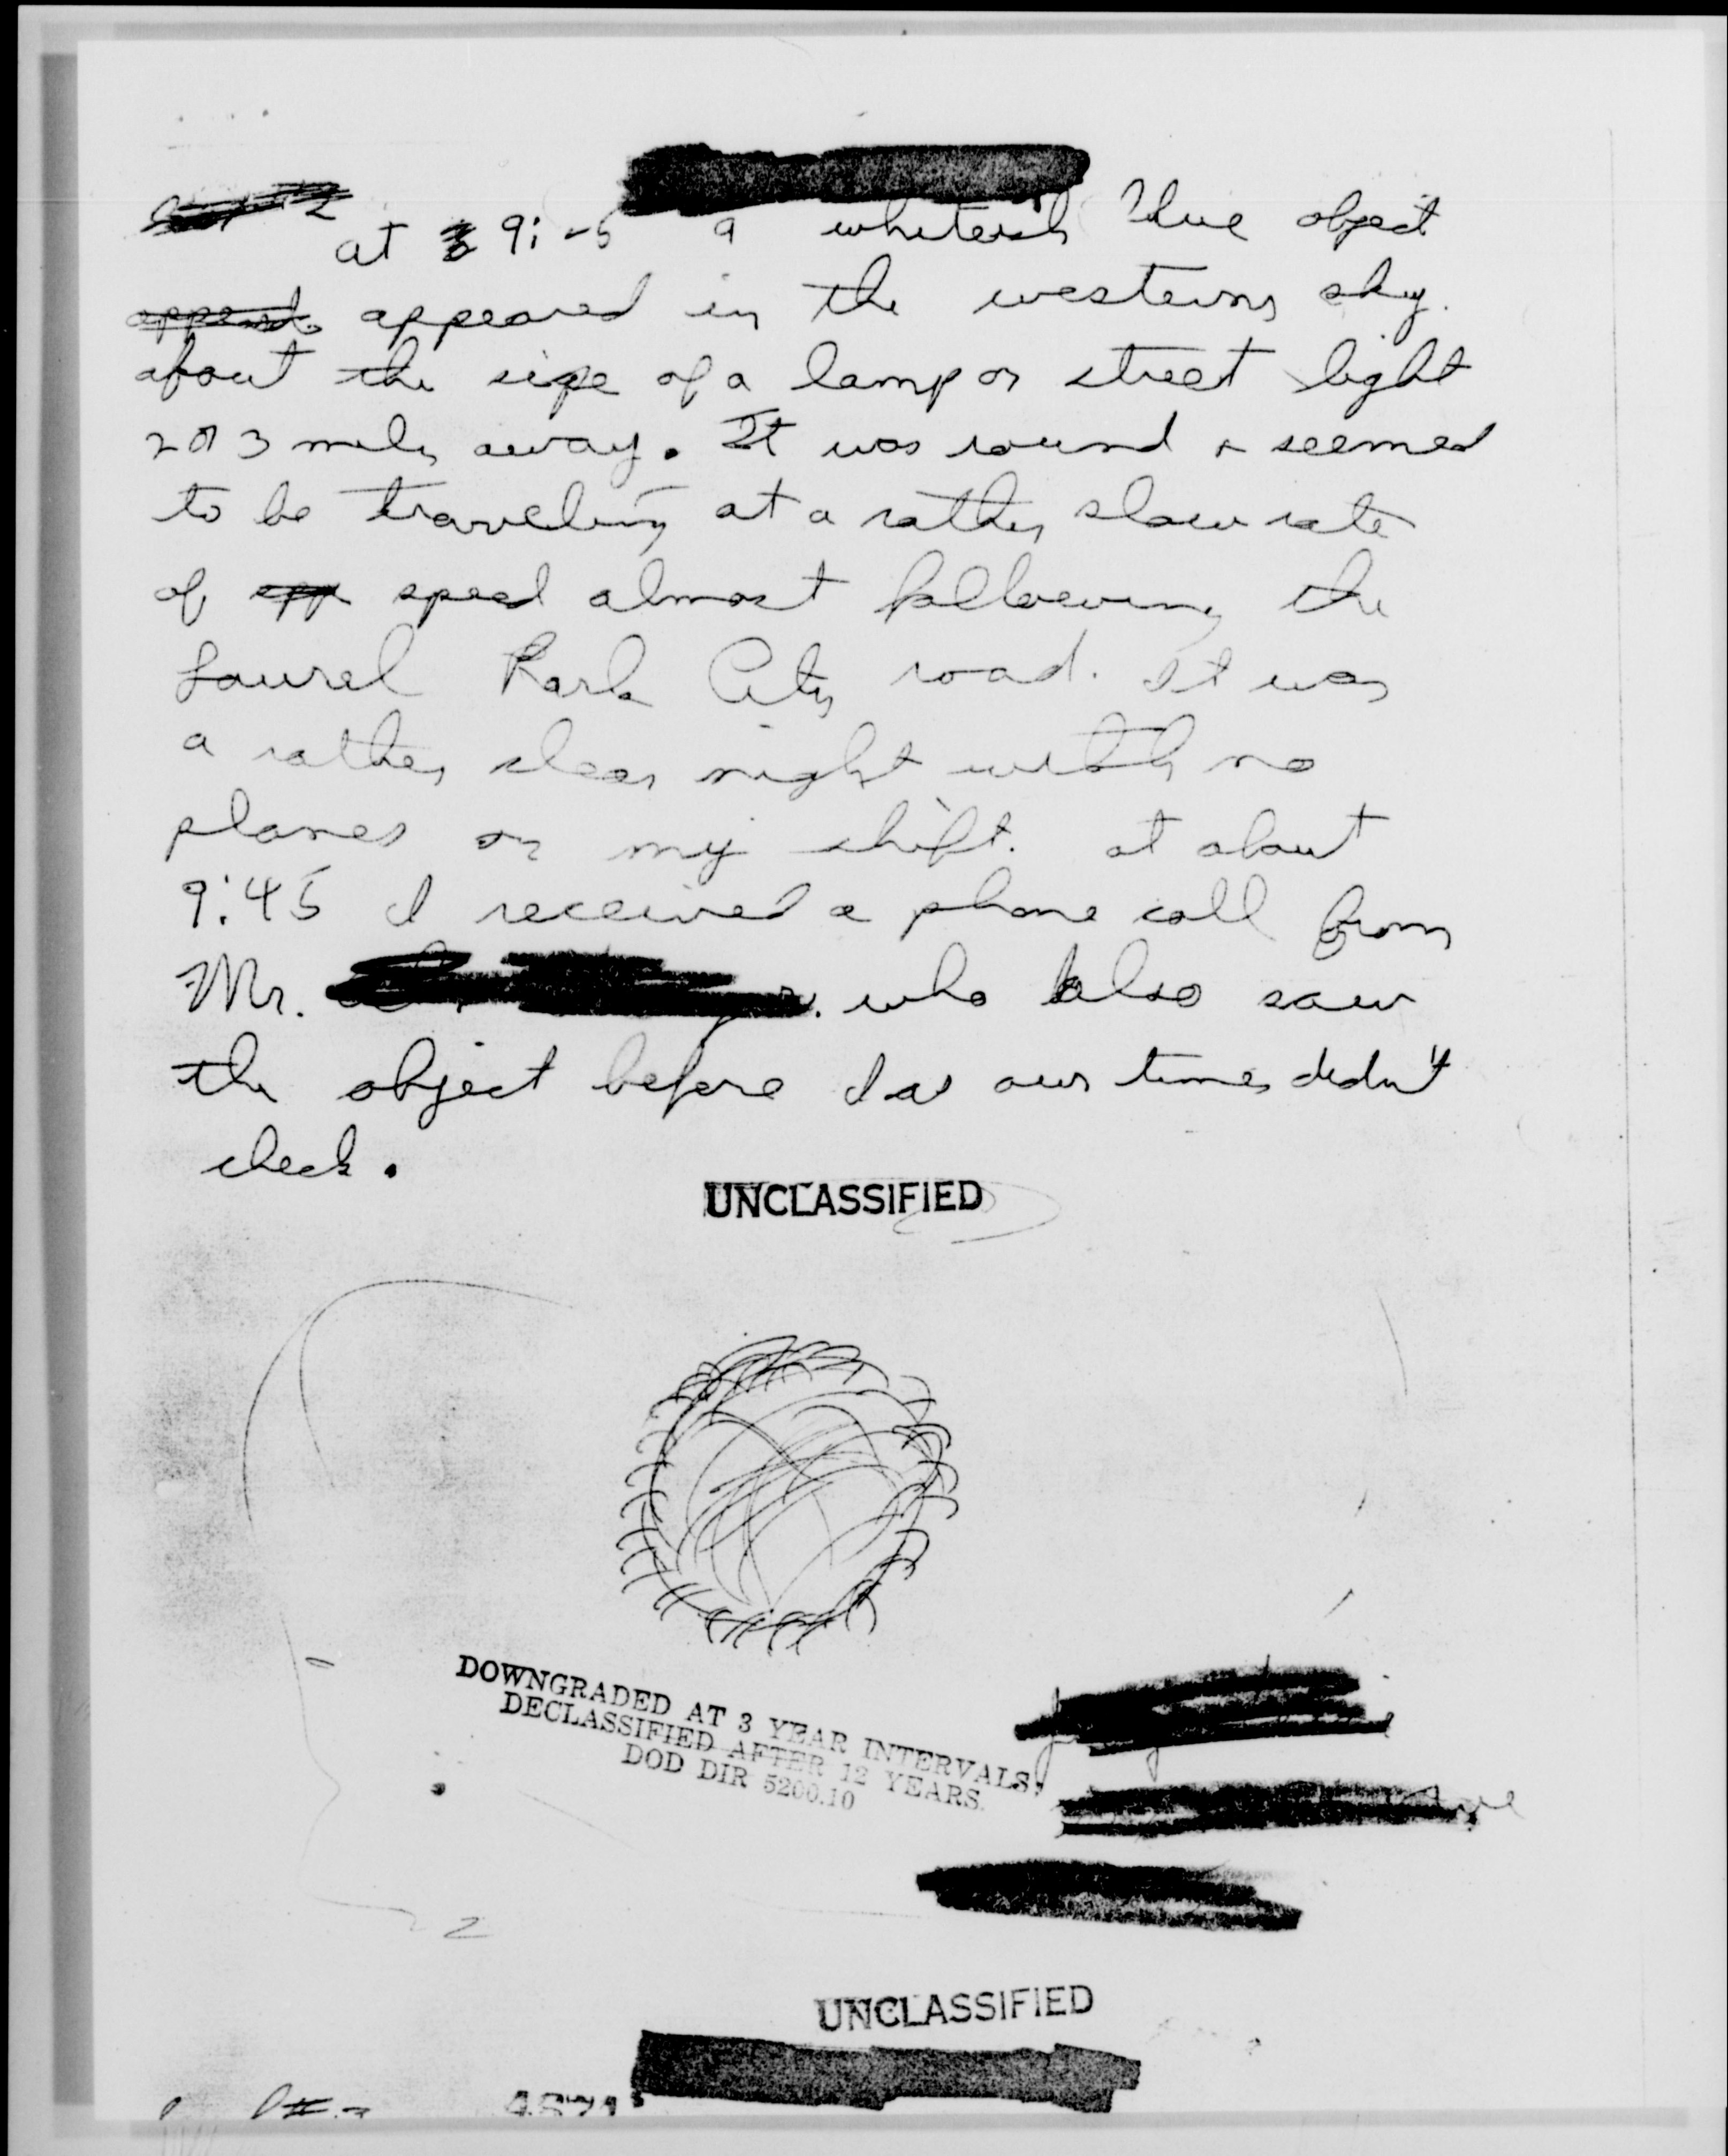 at 9: -5 a whiteish blue object
appeared in the western sky.
about the size of a lamp or street light
2 or 3 miles away. It was round & seemed
to be traveling at a rather slow rate
of speed almost following the
Laurel Park City road. It was
a rather clear night with no
planes on my shift. at about
9:45 I received a phone call from
Mr. who also saw
the object before I as our times didn't
check.
UNCLASSIFIED
DOWNGRADED AT 3 YEAR INTERVALS;
DECLASSIFIED AFTER 12 YEARS.
DOD DIR 5200.10
UNCLASSIFIED